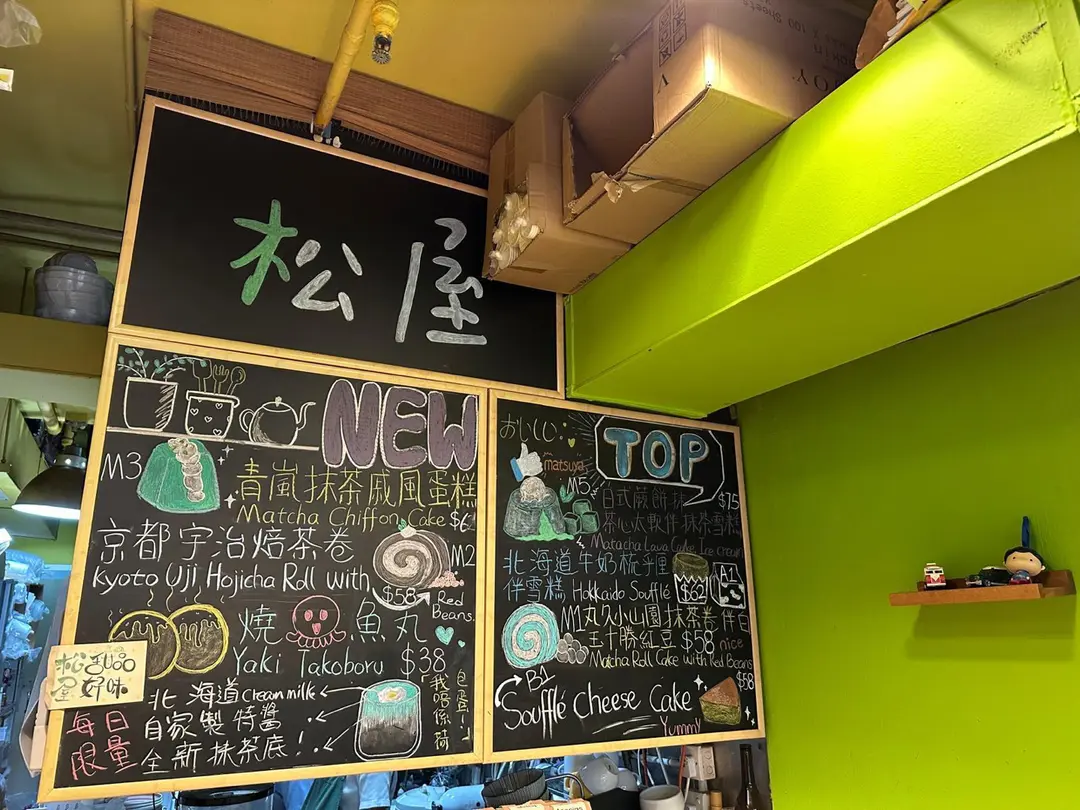 松屋
NEW
M3
青嵐抹茶戚風蛋糕
Matcha Chiffon Cake
京都宇治焙茶卷
M2
Kyoto Uji Hojicha Roll with
$58
Red
Beans
燒 魚丸
Yaki Takoboru $38
松屋
好味
北海道 Cream milk
自家製特醬
全新抹茶底！
每日
限量
我唔係荷
包蛋！
おいしい
TOP
matsuya
M5
$75
Matacha Lava Cake, Ice cream
北海道牛奶梳乎厘
伴雪糕 Hokkaido Soufflé $62
A1
M1丸久小山園抹茶卷件
十勝紅豆 $58 nice
Matcha Roll Cake with Red Beans
$58
B1
Soufflé Cheese Cake
Yummy